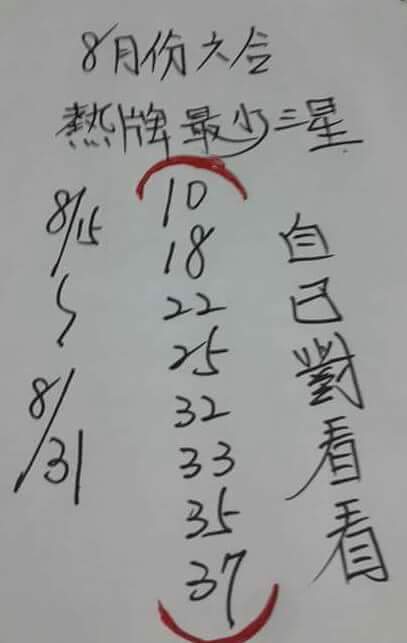 8月份六合
熱牌最少三星
8/15
~
8/31
10
18
22
25
32
33
35
37
自己對看看